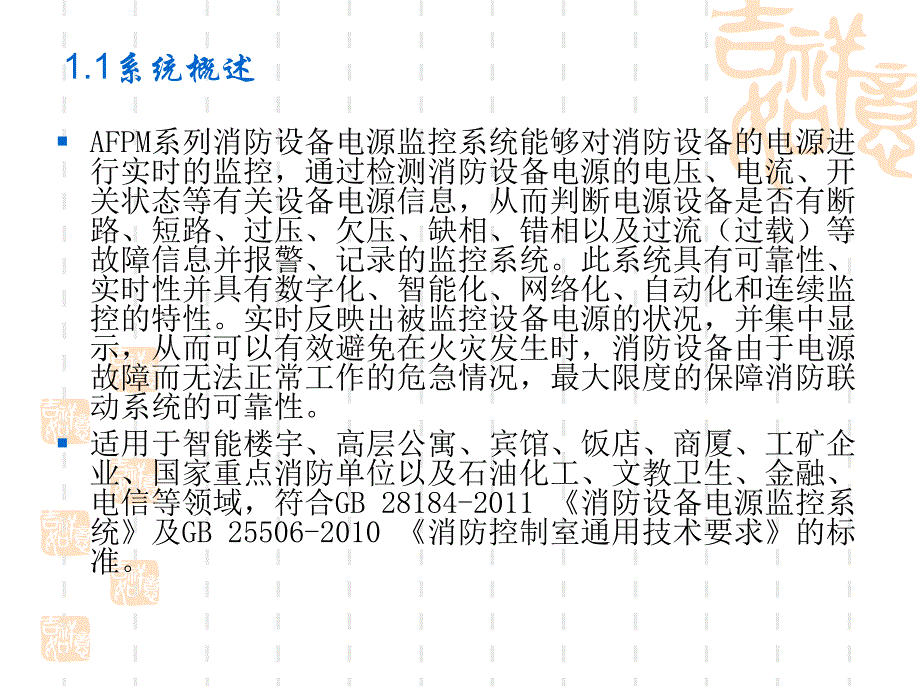 吉祥如意
1.1系统概述
AFPM系列消防设备电源监控系统能够对消防设备的电源进
行实时的监控，通过检测消防设备电源的电压、电流、开
关状态等有关设备电源信息，从而判断电源设备是否有断
路、短路、过压、欠压、缺相、错相以及过流（过载）等
故障信息并报警、记录的监控系统。此系统具有可靠性、
实时性并具有数字化、智能化、网络化、自动化和连续监
控的特性。实时反映出被监控设备电源的状况，并集中显
示，从而可以有效避免在火灾发生时，消防设备由于电源
故障而无法正常工作的危急情况，最大限度的保障消防联
动系统的可靠性。
适用于智能楼宇、高层公寓、宾馆、饭店、商厦、工矿企
业、国家重点消防单位以及石油化工、文教卫生、金融、
电信等领域，符合GB 28184-2011 《消防设备电源监控系
统》及GB 25506-2010 《消防控制室通用技术要求》的标
准。
吉祥如意
吉祥如意
吉祥如意
吉祥如意
吉祥如意
吉祥如意
吉祥如意